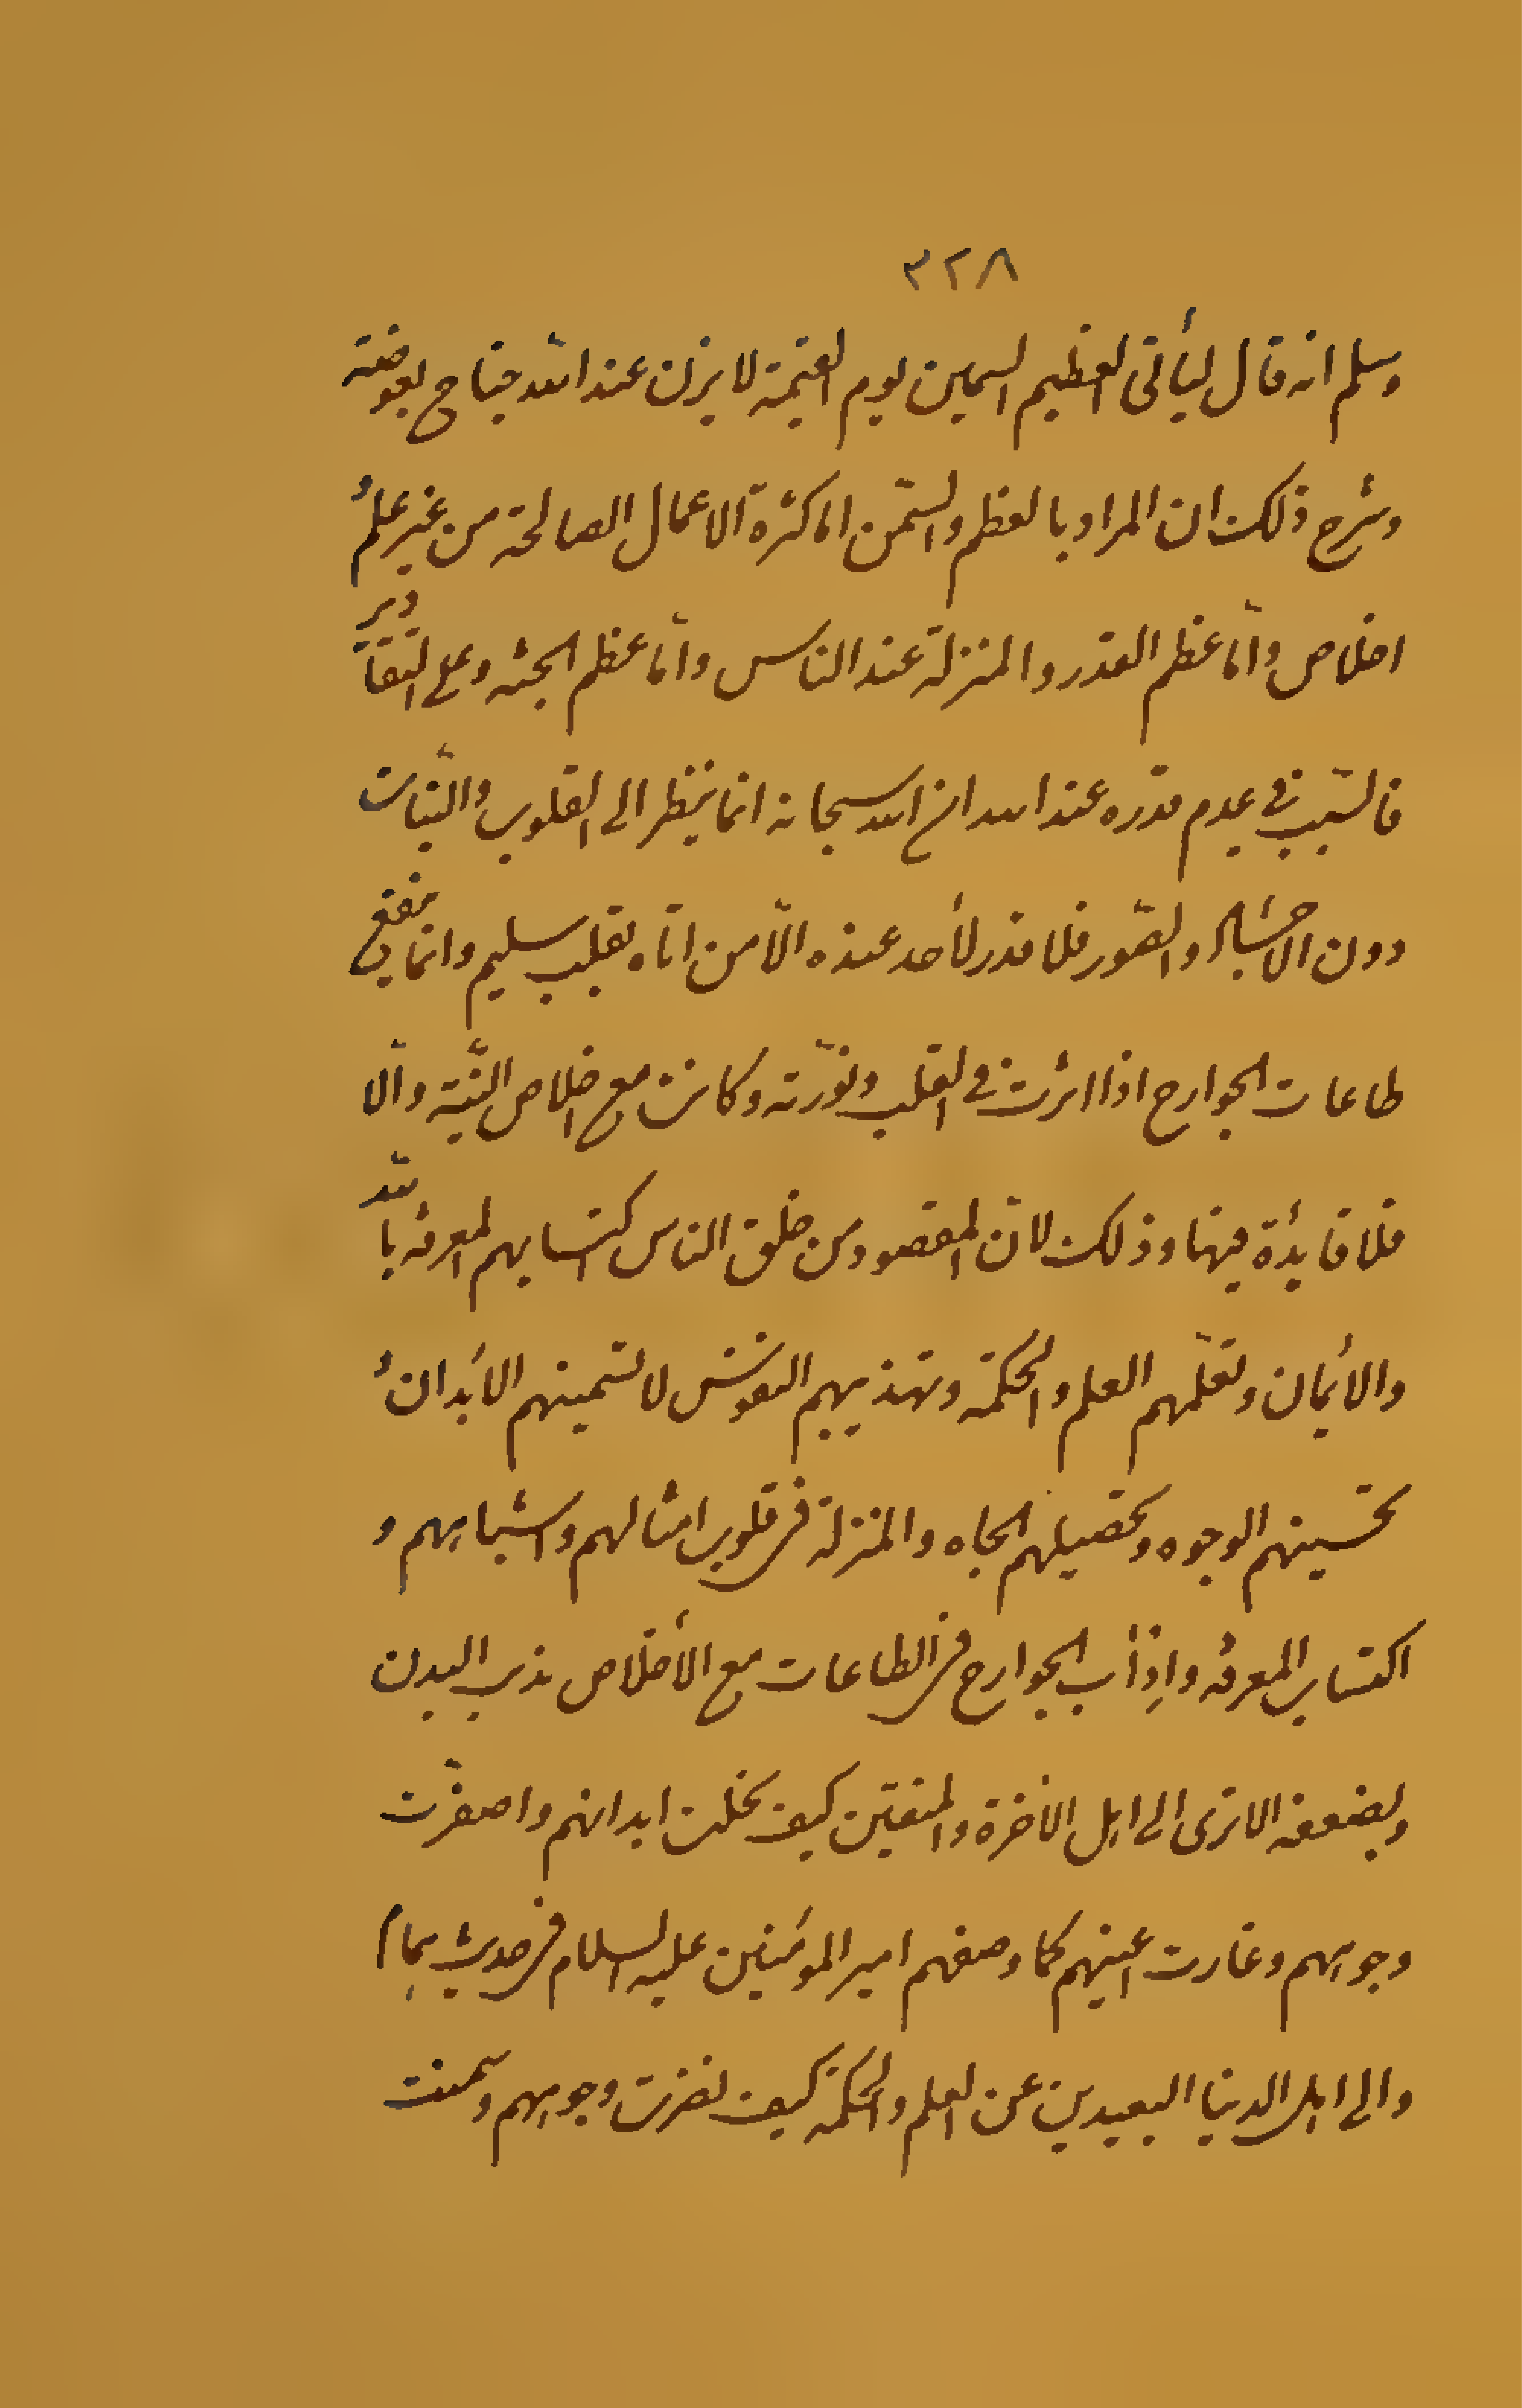 ٣٢٨
وسلم انه قال ليأتى العظيم السمين يوم القيمة لا يزن عند الله جناح بعوضة
وشرح ذلك ان المراد بالعظم والسّمن اما كثرة الاعمال الصالحة من غير علم و
اخلاص وامّا عظم القدر والمنزلة عند الناس وامّا عظم الجثه وعلى التقادير
فالسّبب فى عدم قدره عند الله ان الله سبحانه انما ينظر الى القلوب والنّيات
دون الاجساد والصّور فلا قدر لأحد عنده الّا من اتاه بقلب سليم وانما ينفع
طاعات الجوارح اذا اثرت فى القلب ونوّرته وكانت مع اخلاص النّية والّا
فلا فايدة فيها وذلك لانّ المقصود من خلق الناس اكتسابهم المعرفة بالله
والأيمان وتعلّمهم العلم والحكمة وتهذيبهم النفوس لا تسمينهم الأبدان و
تحسينهم الوجوه وتحصيلهم الجاه والمنزلة فى قلوب امثالهم واشباههم و
اكتساب المعرفة واذأب الجوارح فى الطاعات مع الأخلاص يذيب البدن
ويضعفه الا ترى الى اهل الاخرة والمتقين كيف نحلت ابدانهم واصفرّت
وجوههم وغارت اعينهم كما وصفهم امير المؤمنين عليه السلام فى حديث همام
والى اهل الدنيا البعيدين عن العلم والحكمة كيف نضرت وجوههم وسمنت